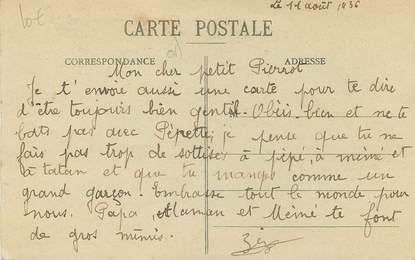 Lot
le 11 août 1936
CARTE POSTALE
CORRESPONDANCE
ADRESSE
Mon cher petit Pierrot
Je t'envoie aussi une carte pour te dire
d'être toujours bien gentil. Obéis bien et ne te
bats pas avec Pépette, je pense que tu ne
fais pas trop de sottises à pépé, à mémé et
à tatan et que tu manges comme un
grand garçon. Embrasse tout le monde pour
nous. Papa, Maman et Mémé te font
de gros mimis.